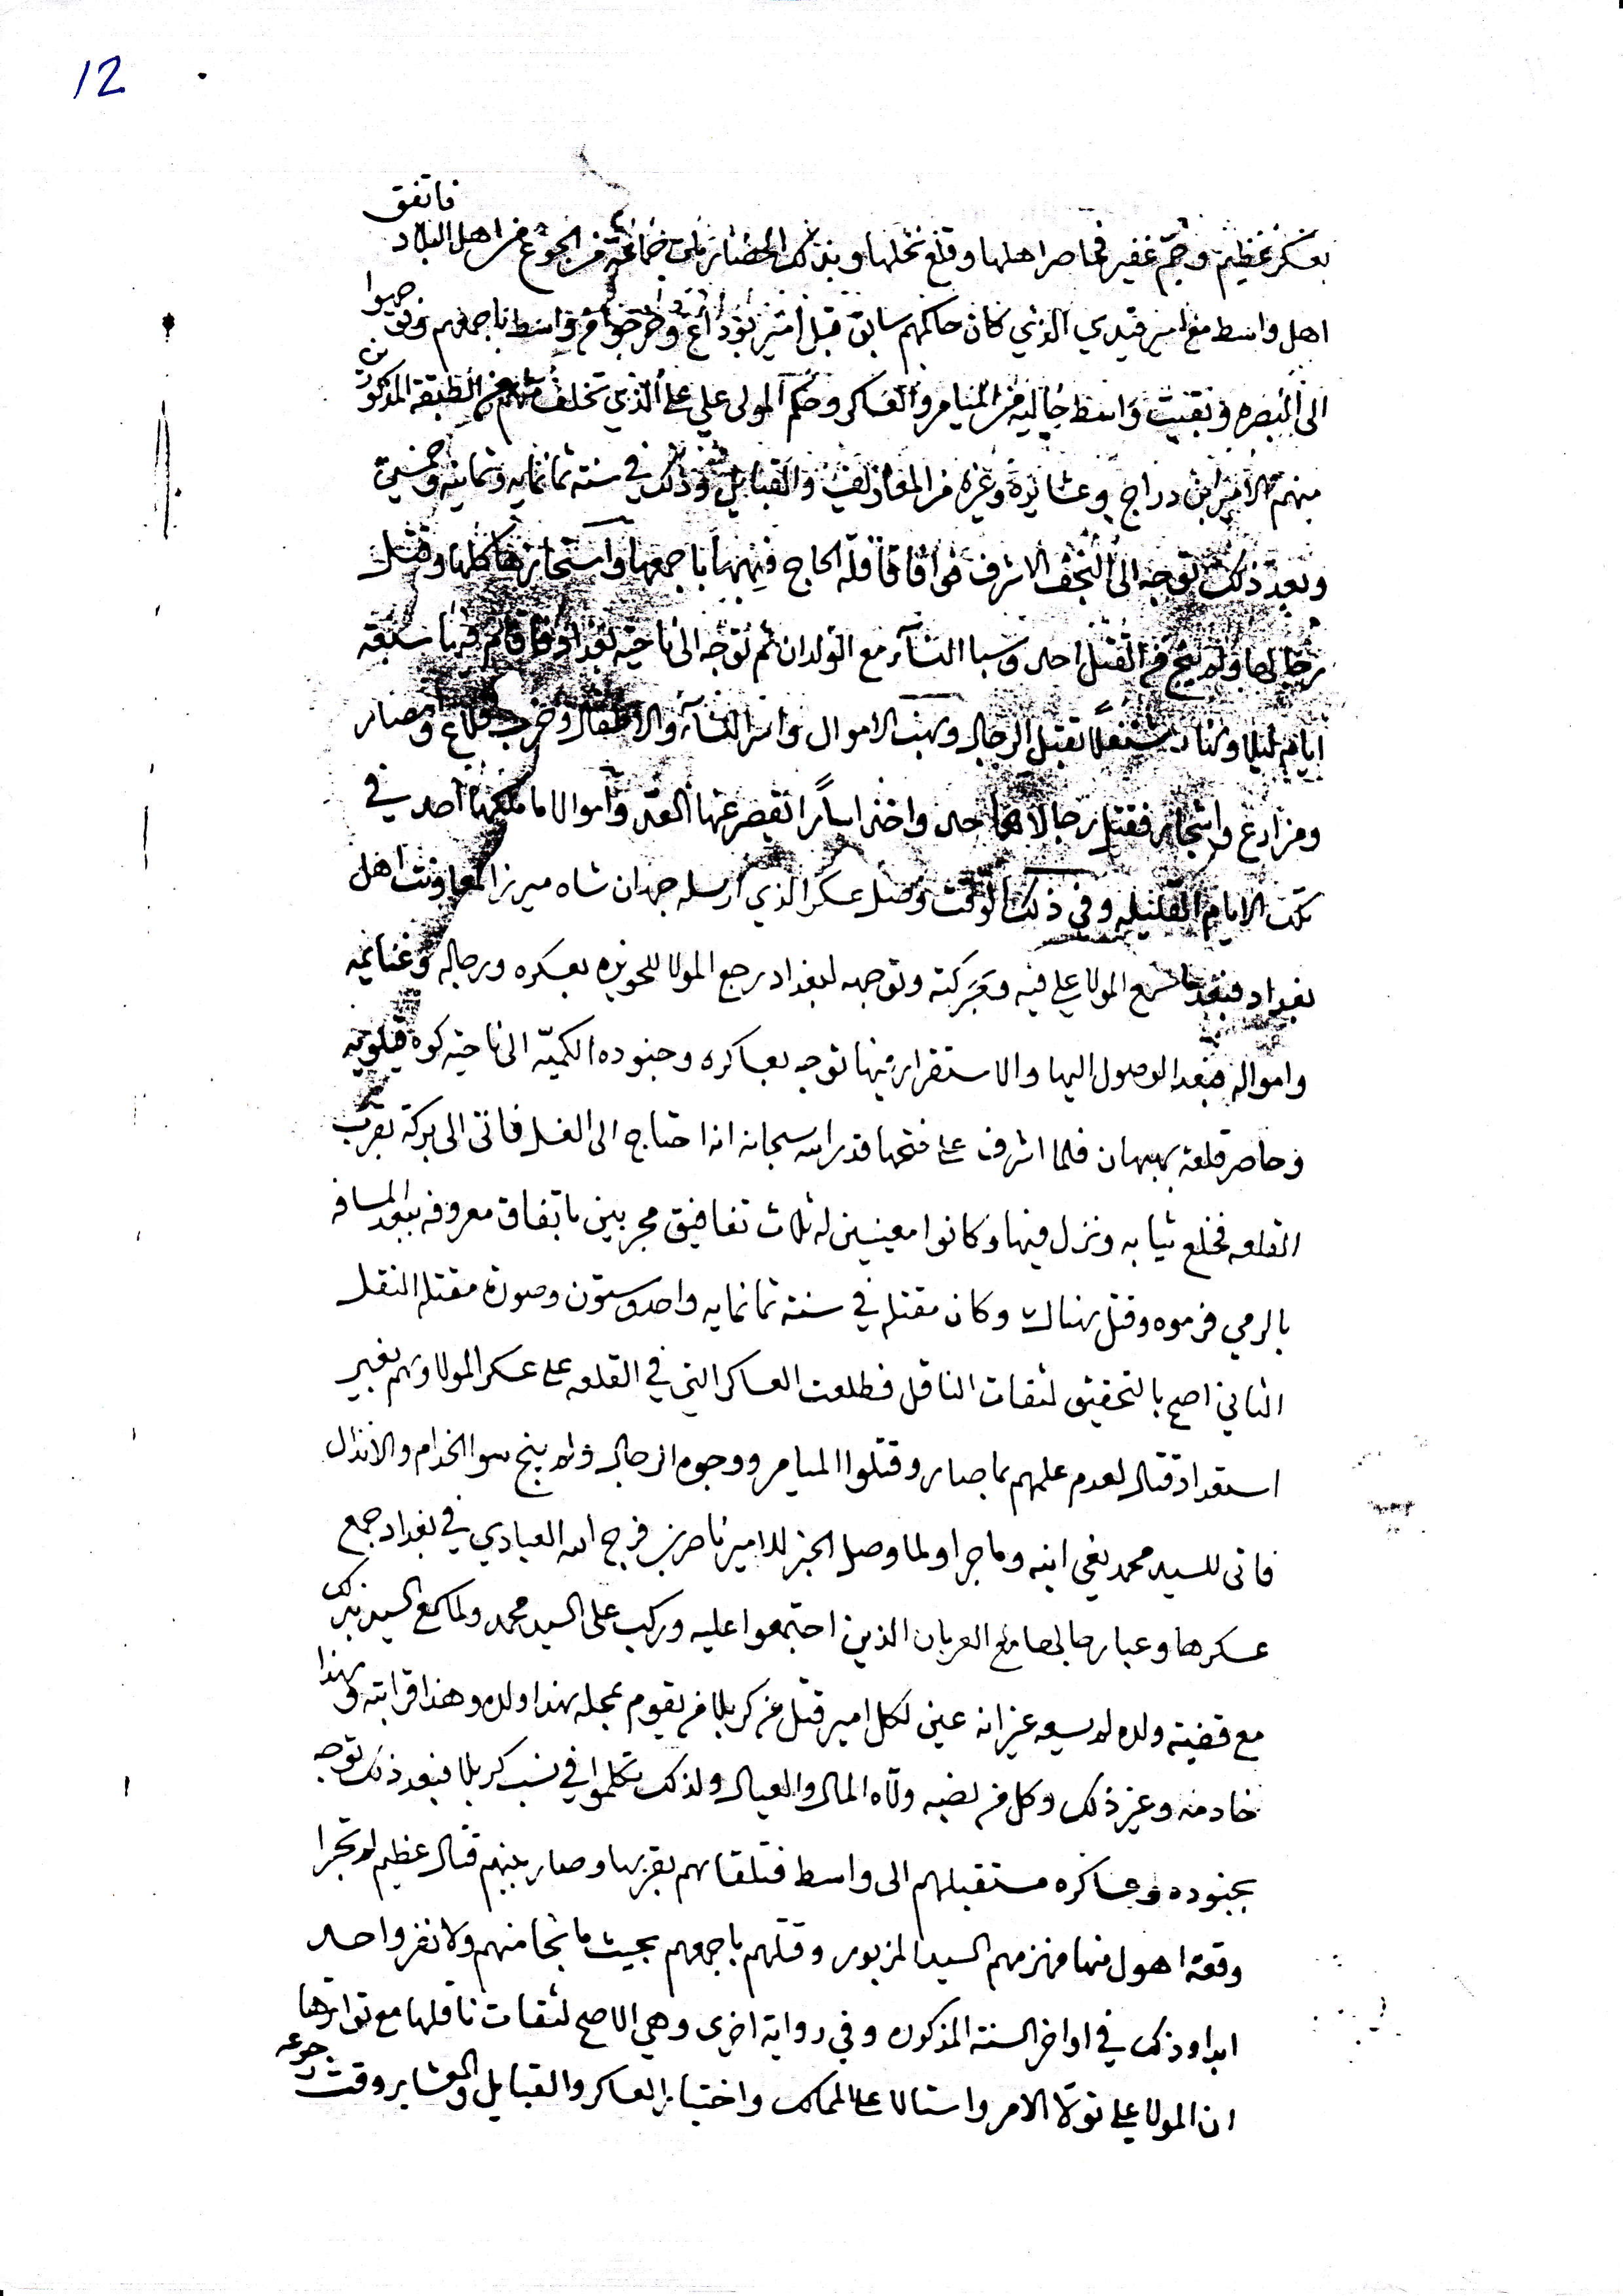 12
بعسكر عظيم وجم غفير فحاصر اهلها وقلع نخلها وبذلك الحصار مات جماعة من الجوع من اهل البلاد فاتفق
اهل واسط مع امير قيدي الذي كان حاكمهم سابق قبل امير بوداغ وخرجوا من واسط باجمعهم وتوجهوا
الى البصره وبقيت واسط خاليه من الميامر والعساكر وحكم المولى علي على الذي تخلف منهم من الطبقة المذكورين
منهم الامير ابن دراج وعشايره وغيره من المعاذلف والقبايل وذلك في سنة ثمانمايه وثمانيه وخمسين
وبعد ذلك توجه الى النجف الاشرف فوافا قافلة الحاج فنهبها باجمعها واستحازها كلها وقتل
رجالها ولم ينج من القتل احد وسبا النسآء مع الولدان ثم توجه الى ناحية بغداد فاقام فيها سبعة
ايام ليلا ونهارا مشتغلاً بقتل الرجال ونهب الاموال واسر النسآء والاطفال وخرب قلاع وامصار
ومزارع واشجار فقتل رجالا واخذ اسارًا تقصر عنها العد واموالا ما ملكها احد في
تلك الايام القليله وفي ذلك الوقت وصل عسكر الذي ارسله جهان شاه ميرزا لمعاونت اهل
بغداد فبعد ما سمع المولا علي فيه وبحركته وتوجهه لبغداد رجع المولا للحويزه بعسكره ورجاله وغنايمه
وامواله فبعد الوصول اليها والاستقرار فيها توجه بعساكره وجنوده الكميّه الى ناحية كوه قيلويه
وحاصر قلعة بهبهان فلما اشرف على فتحها قدر الله سبحانه انه احتاج الى الغسل فاتى الى بركة بقرب
القلعه فخلع ثيابه ونزل فيها وكانوا معينين له ثلاث تفافيق مجربين باتفاق معروفه ببعد المسافه
بالرمي فرموه وقتل بهناك وكان مقتله في سنة ثمانمايه واحد وستون وصورة مقتله النقل
الثاني اصح بالتحقيق لثقات الناقل فطلعت العساكر التي في القلعه على عسكر المولا وهم بغير
استعداد قتال لعدم علمهم بما صار وقتلوا الميامر ووجوه الرجال ولم ينج سوا الخدام والانذال
فاتى للسيد محمد بغي ابنه وما جرا ولما وصل الخبر للامير ناصر بن فرج الله العبادي في بغداد جمع
عسكرها وعبا رجالها مع العربان الذين اجتمعوا عليه وركب على السيد محمد ولما سمع السيد بذلك
مع قضية ولده لم يسعه غير انه عين لكل امير قتل من كربلا من يقوم بمحله بهذا ولده وهذا قرابته وبهذا
خادمه وغير ذلك وكل من نصبه ولّاه المال والعيال ولذلك تكلموا في نسب كربلا فبعد ذلك توجه
بجنوده وعساكره مستقبلهم الى واسط فتلقاهم بقربها وصار بينهم قتال عظيم لم تجرا
وقعة اهول منها فهزمهم السيد المزبور وقتلهم باجمعهم بحيث ما نجا منهم ولا نفر واحد
ابدا وذلك في اواخر السنة المذكوره وفي رواية اخرى وهي الاصح لثقات ناقلها مع تواترها
ان المولا علي تولّا الامر واستالا على الممالك واختيار العساكر والقبايل والعشاير وقت رجوعه